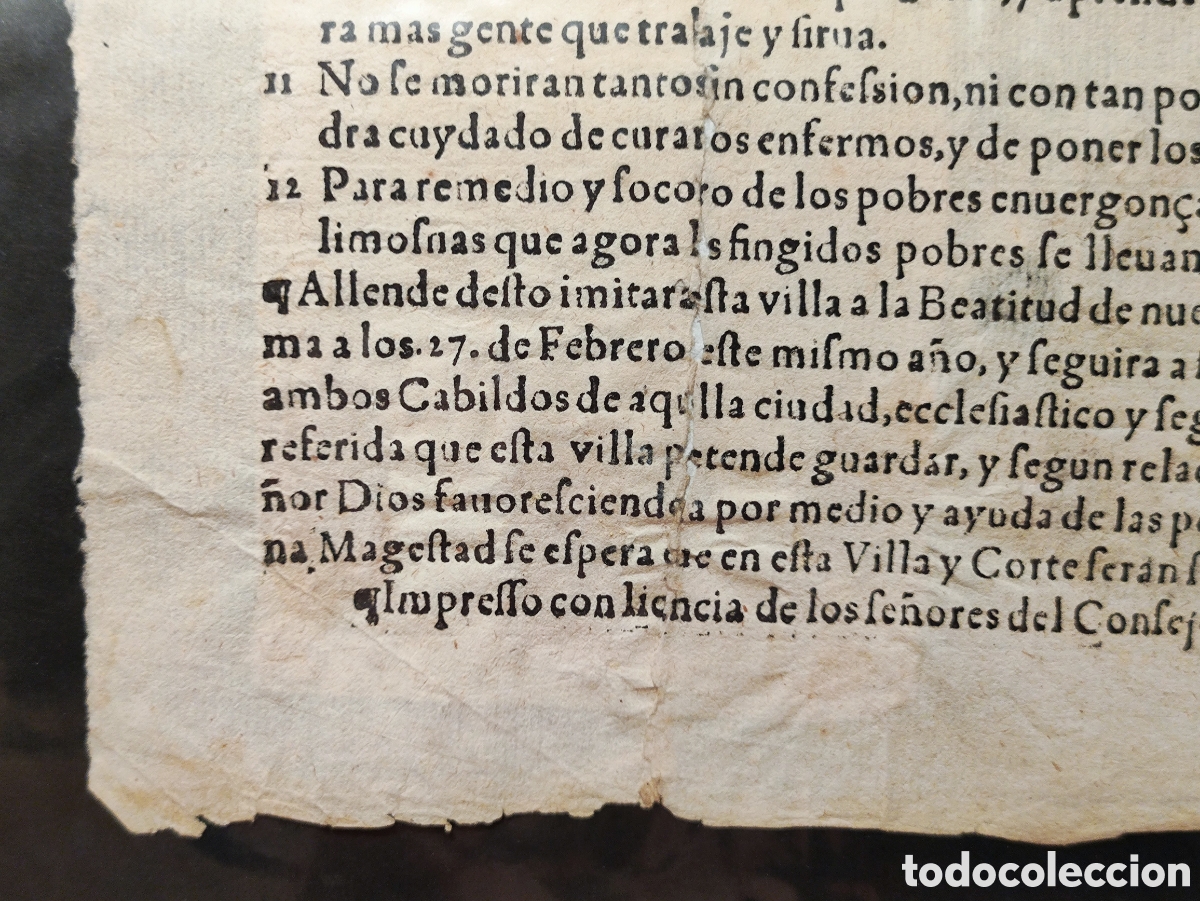 ra mas gente que trabaje y ſirua.
11 No ſe moriran tantos ſin confeſsion, ni con tan po
dra cuydado de curar los enfermos, y de poner los
12 Para remedio y ſocorro de los pobres enuergonça
limoſnas que agora los fingidos pobres ſe lleuan
¶Allende deſto imitara eſta villa a la Beatitud de nue
ma a los .27. de Febrero eſte miſmo año, y ſeguira a
ambos Cabildos de aquella ciudad, eccleſiaſtico y ſeg
referida que eſta villa pretende guardar, y ſegun rela
ñor Dios fauoreſciendola por medio y ayuda de las p
na Mageſtad ſe eſpera que en eſta Villa y Corte ſeran
¶Impreſſo con licencia de los ſeñores del Conſej
todocoleccion